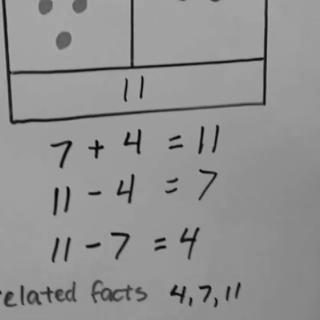 11
7 + 4 = 11
11 - 4 = 7
11 - 7 = 4
elated facts 4, 7, 11